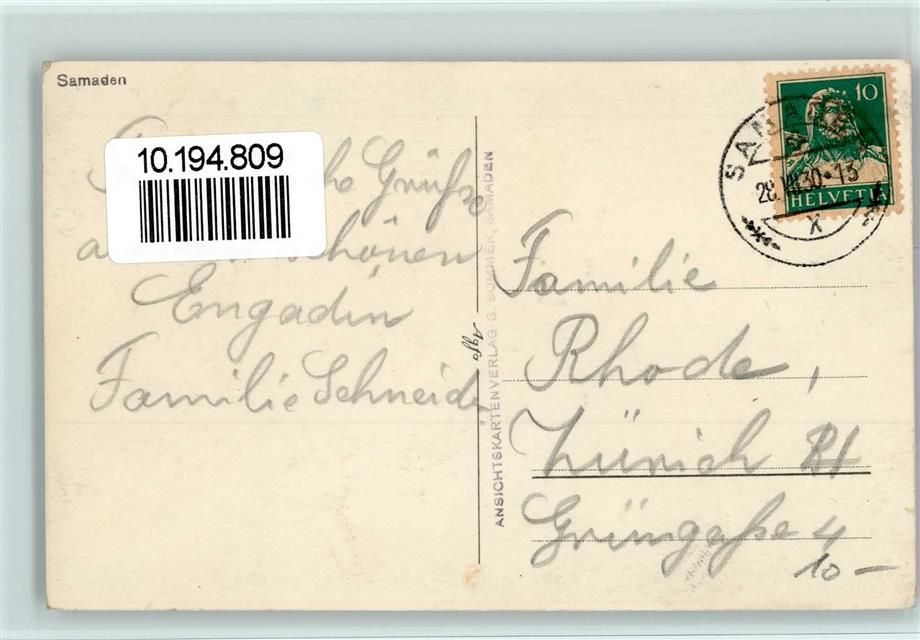 Samaden
10.194.809
Grüße
schönen
Engadin
Familie Schneider
ANSICHTSKARTENVERLAG G. SOMMER, SAMADEN
Agfa
10
HELVETIA
28.VII.30·13
X
Familie
Rhode,
Zürich
Grüngaße 4
10 —